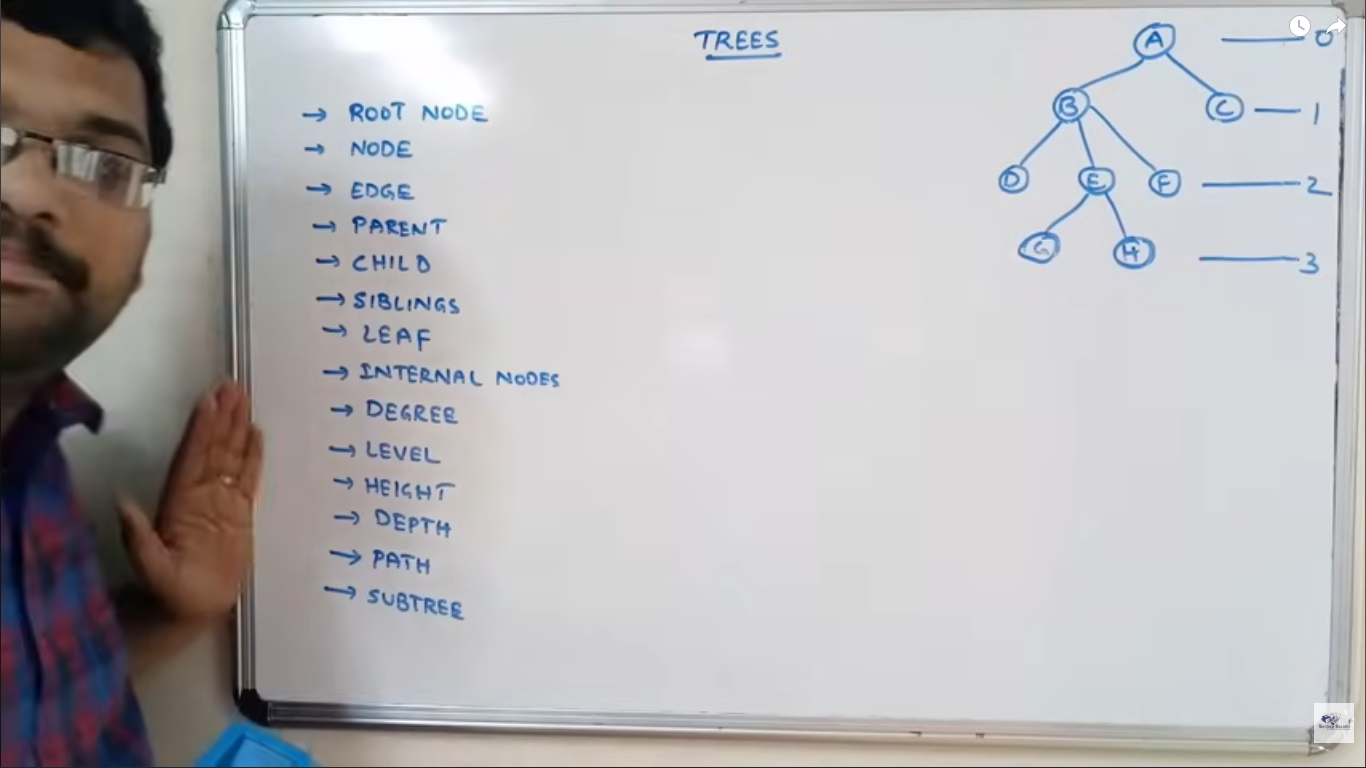 TREES
→ ROOT NODE
→ NODE
→ EDGE
→ PARENT
→ CHILD
→ SIBLINGS
→ LEAF
→ INTERNAL NODES
→ DEGREE
→ LEVEL
→ HEIGHT
→ DEPTH
→ PATH
→ SUBTREE
A 0
B C 1
D E F 2
G H 3